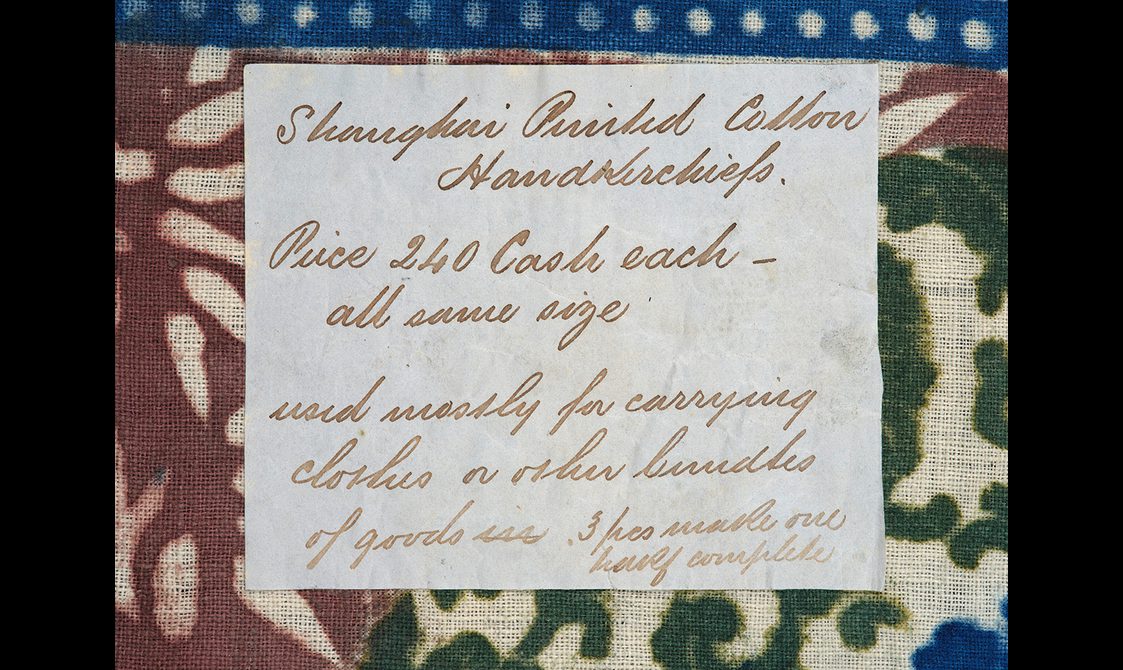 Shanghai Printed Cotton
Handkerchiefs.
Price 240 Cash each –
all same size
used mostly for carrying
clothes or other bundles
of goods in . 3 pcs make one
half complete